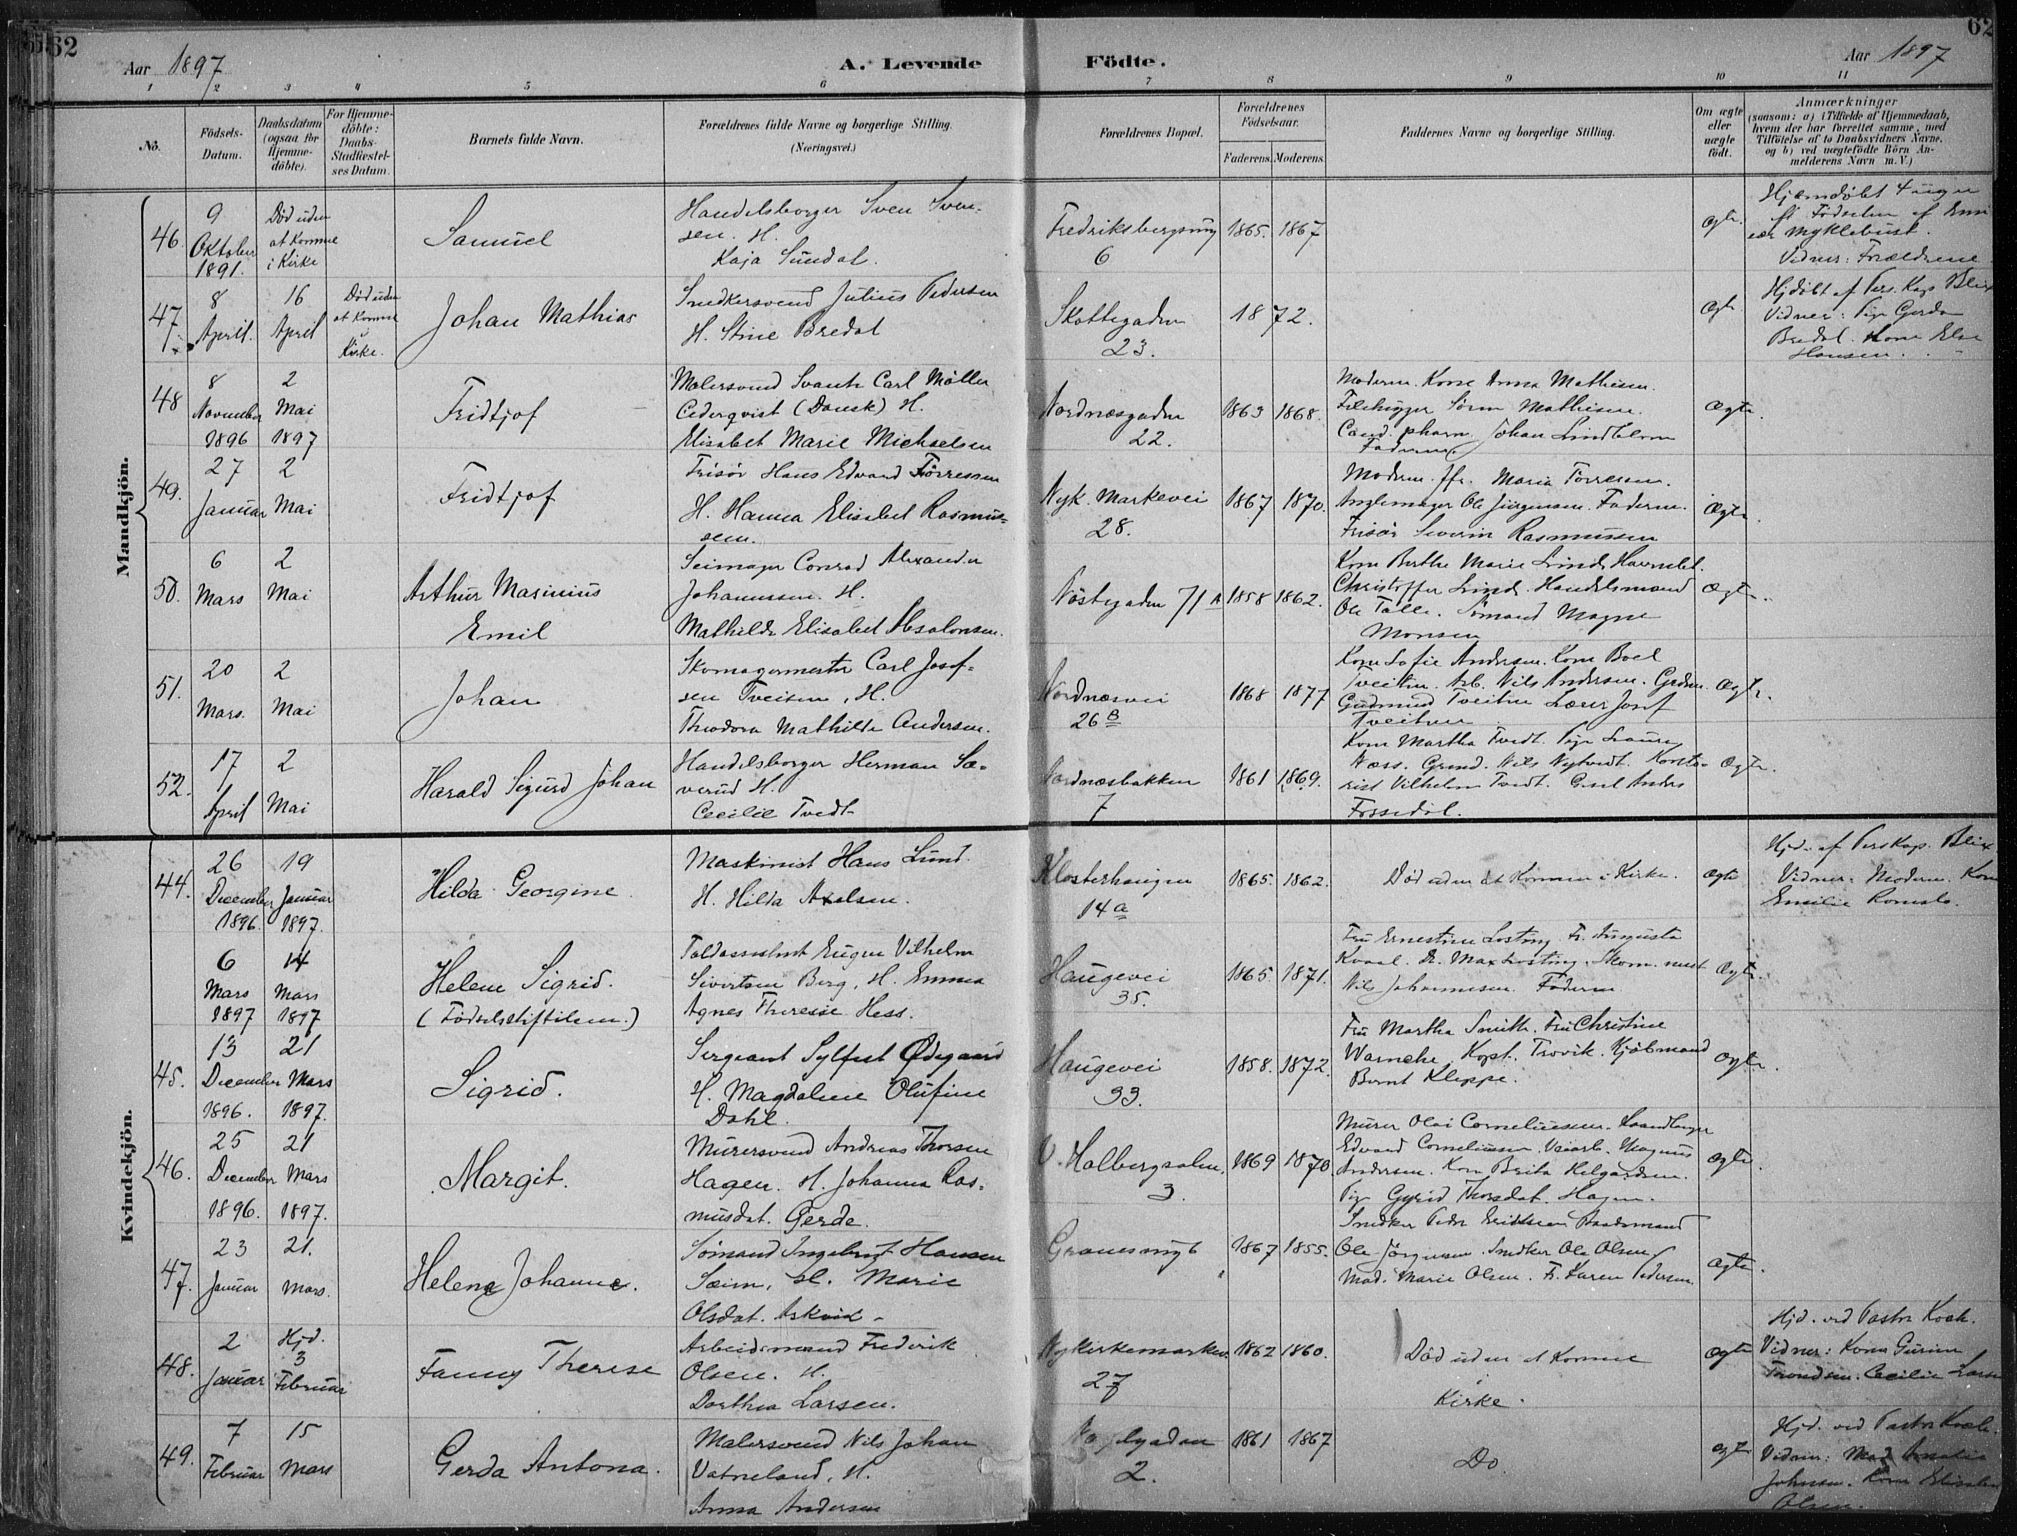 62
62
Aar 1897
A. Levende Födte.
Aar 1897
1 2 3 4 5 6 7 8 9 10 11
No.
Födsels-Datum.
Daabsdatum (ogsaa for Hjemme-döbte).
For Hjemme-döbte: Daabs-Stadfæstel-ses Datum.
Barnets fulde Navn.
Forældrenes fulde Navne og borgerlige Stilling.
(Næringsvei.)
Forældrenes Bopæl.
Forældrenes Födselsaar.
Faderens. Moderens.
Faddernes Navne og borgerlige Stilling.
Om ægte eller uægte födt.
Anmærkninger
(saasom: a) i Tilfælde af Hjemmedaab,
hvem der har forrettet samme, med
Tilföielse af to Daabsvidners Navne,
og b) ved uægtefödte Börn An-
melderens Navn m. V.)
Mandkjön.
46. 9 Oktober 1891.
Död uden at Komme i Kirke
Samuel
Handelsborger Sven Sven-
sen. H.
Kaja Sundal.
Fredriksbergsmug 6
1865. 1867
ægte.
Hjemdöbt
Födselen af
Myklebust.
Vidner: Forældrene
47. 8 April. 16 April
Död uden at Komme i Kirke.
Johan Mathias
Snedkersvend Julius Pedersen
H. Stine Bredal
Skottegaden 23.
1872.
ægte.
Hjdöbt af Pers. Kap. Blix
Vidner: Pige Gerda
Bredal. Kone Else
Hansen.
48 8 November 1896 2 Mai 1897
Fridtjof
Malersvend Svante Carl Möller
Cederqvist (Dansk) H.
Elisabet Marie Michaelsen
Nordnæsgaden 22.
1863 1868.
Moderen. Kone Anna Mathisen.
Filehugger Sören Mathisen.
Cand. pharm. Johan Lindblom
Faderen.
Ægte.
49. 27 Januar 2 Mai
Fridtjof
Frisör Hans Edvard Törressen
H. Hanna Elisabet Rasmus-
sen.
Nyk. Markevei 28.
1867 1870.
Moderen. Maria Törresen.
Ole Jörgensen. Faderen.
Frisör Severin Rasmussen
Ægte.
50. 6 Mars 2 Mai
Arthur Marinius
Emil
Seimager Conrad Alexander
Johannessen. H.
Mathilde Elisabet Absalonsen.
Nöstegaden 71 A
1858 1862.
Kone Berthe Marie Lind.
Christoffer Lind. Handelsmand
Ole Tolle. Sömand Magne
Monsen
Ægte.
51. 20 Mars. 2 Mai
Johan
Skomagermester Carl Josef-
sen Tveiten, H.
Theodora Mathilde Andersen.
Nordnæsvei 26 B
1868 1877
Kone Sofie Andersen. Kone Boel
Tveiten. Arb. Nils Andersen.
Gudmund Tveiten Lærer Josef
Tveiten
Ægte.
52. 17 April 2 Mai
Harald Sigurd Johan
Handelsborger Herman Sæ-
verud H.
Cecilie Tvedt
Nordnæsbakken 7
1861 1869.
Kone Martha Tvedt. Pige
Næss. Nils
Vilhelm Tvedt. Anders
Fossedal.
Ægte.
Kvindekjön.
44. 26 December 1896. 19 Januar 1897.
Hilda Georgine
Maskinist Hans Lund.
H. Hilda Axelsen.
Klosterhaugen 14a
1865. 1862.
Död uden at Komme i Kirke.
ægte
Hjd. af Perskap. Blix
Vidner: Moderen. Kone
Emilie
6 Mars 1897 14 Mars 1897
Helene Sigrid.
(Födselsstiftelsen.)
Toldassistent Eugen Vilhelm
Sivertsen Berg, H. Emma
Agnes Theresie Hess.
Haugevei 35.
1865 1871.
Fru Ernestine Losting. Fr. Augusta
Kvaal. Dr. Max Losting. Skom. mest
Nils Johannesen. Faderen.
Ægte.
45. 13 December 1896. 21 Mars 1897.
Sigrid.
Sergeant Sylfest Ödegaard
H. Magdalene Olufine
Dahl.
Haugevei 33.
1858. 1872.
Fru Martha Smith. Fru Christine
Warncke. Kapt. Trovik. Kjöbmand
Bernt Kleppe.
ægte.
46. 25 December 1896. 21 Mars 1897.
Margit.
Murersvend Andreas Thorsen
Hagen. H. Johanna Ras-
musdat. Gerde.
V. Holbergsalm. 3.
1869 1870
Murer Olai Corneliussen.
Edvard Corneliussen. Magnus
Andersen. Kone Brita Helgesen.
Pige Gyrid Thorsdat. Hagen.
ægte.
47. 23 Januar 21. Mars.
Helene Johanne.
Sömand Ingebrigt Hansen
Sæim, H. Marie
Olsdat. Askvik
1867 1855.
Snedker Peder
Ole Jörgensen. Snedker Ole Olsen
Mad. Marie Olsen. Fr. Karen Pedersen
ægte.
48. 2 Januar Hjd. 3 Februar
Fanny Therese
Arbeidsmand Frederik
Olsen. H.
Dorthea Larsen.
Nykirkemarken 27
1862 1860.
Död uden at Komme
Kirke.
ægte
Hjd. ved Pastor Koch.
Vidner: Kone Gurine
Trondsen. Cecilie Larsen
49. 7 Februar 15 Mars
Gerda Antona.
Malersvend Nils Johan
Vatneland, H.
Anna Andersen
2.
1861 1867
Do.
ægte
Hjd. ved Pastor Koch.
Vidner: Mad. Amalie
Johnsen. Kone
Olsen.